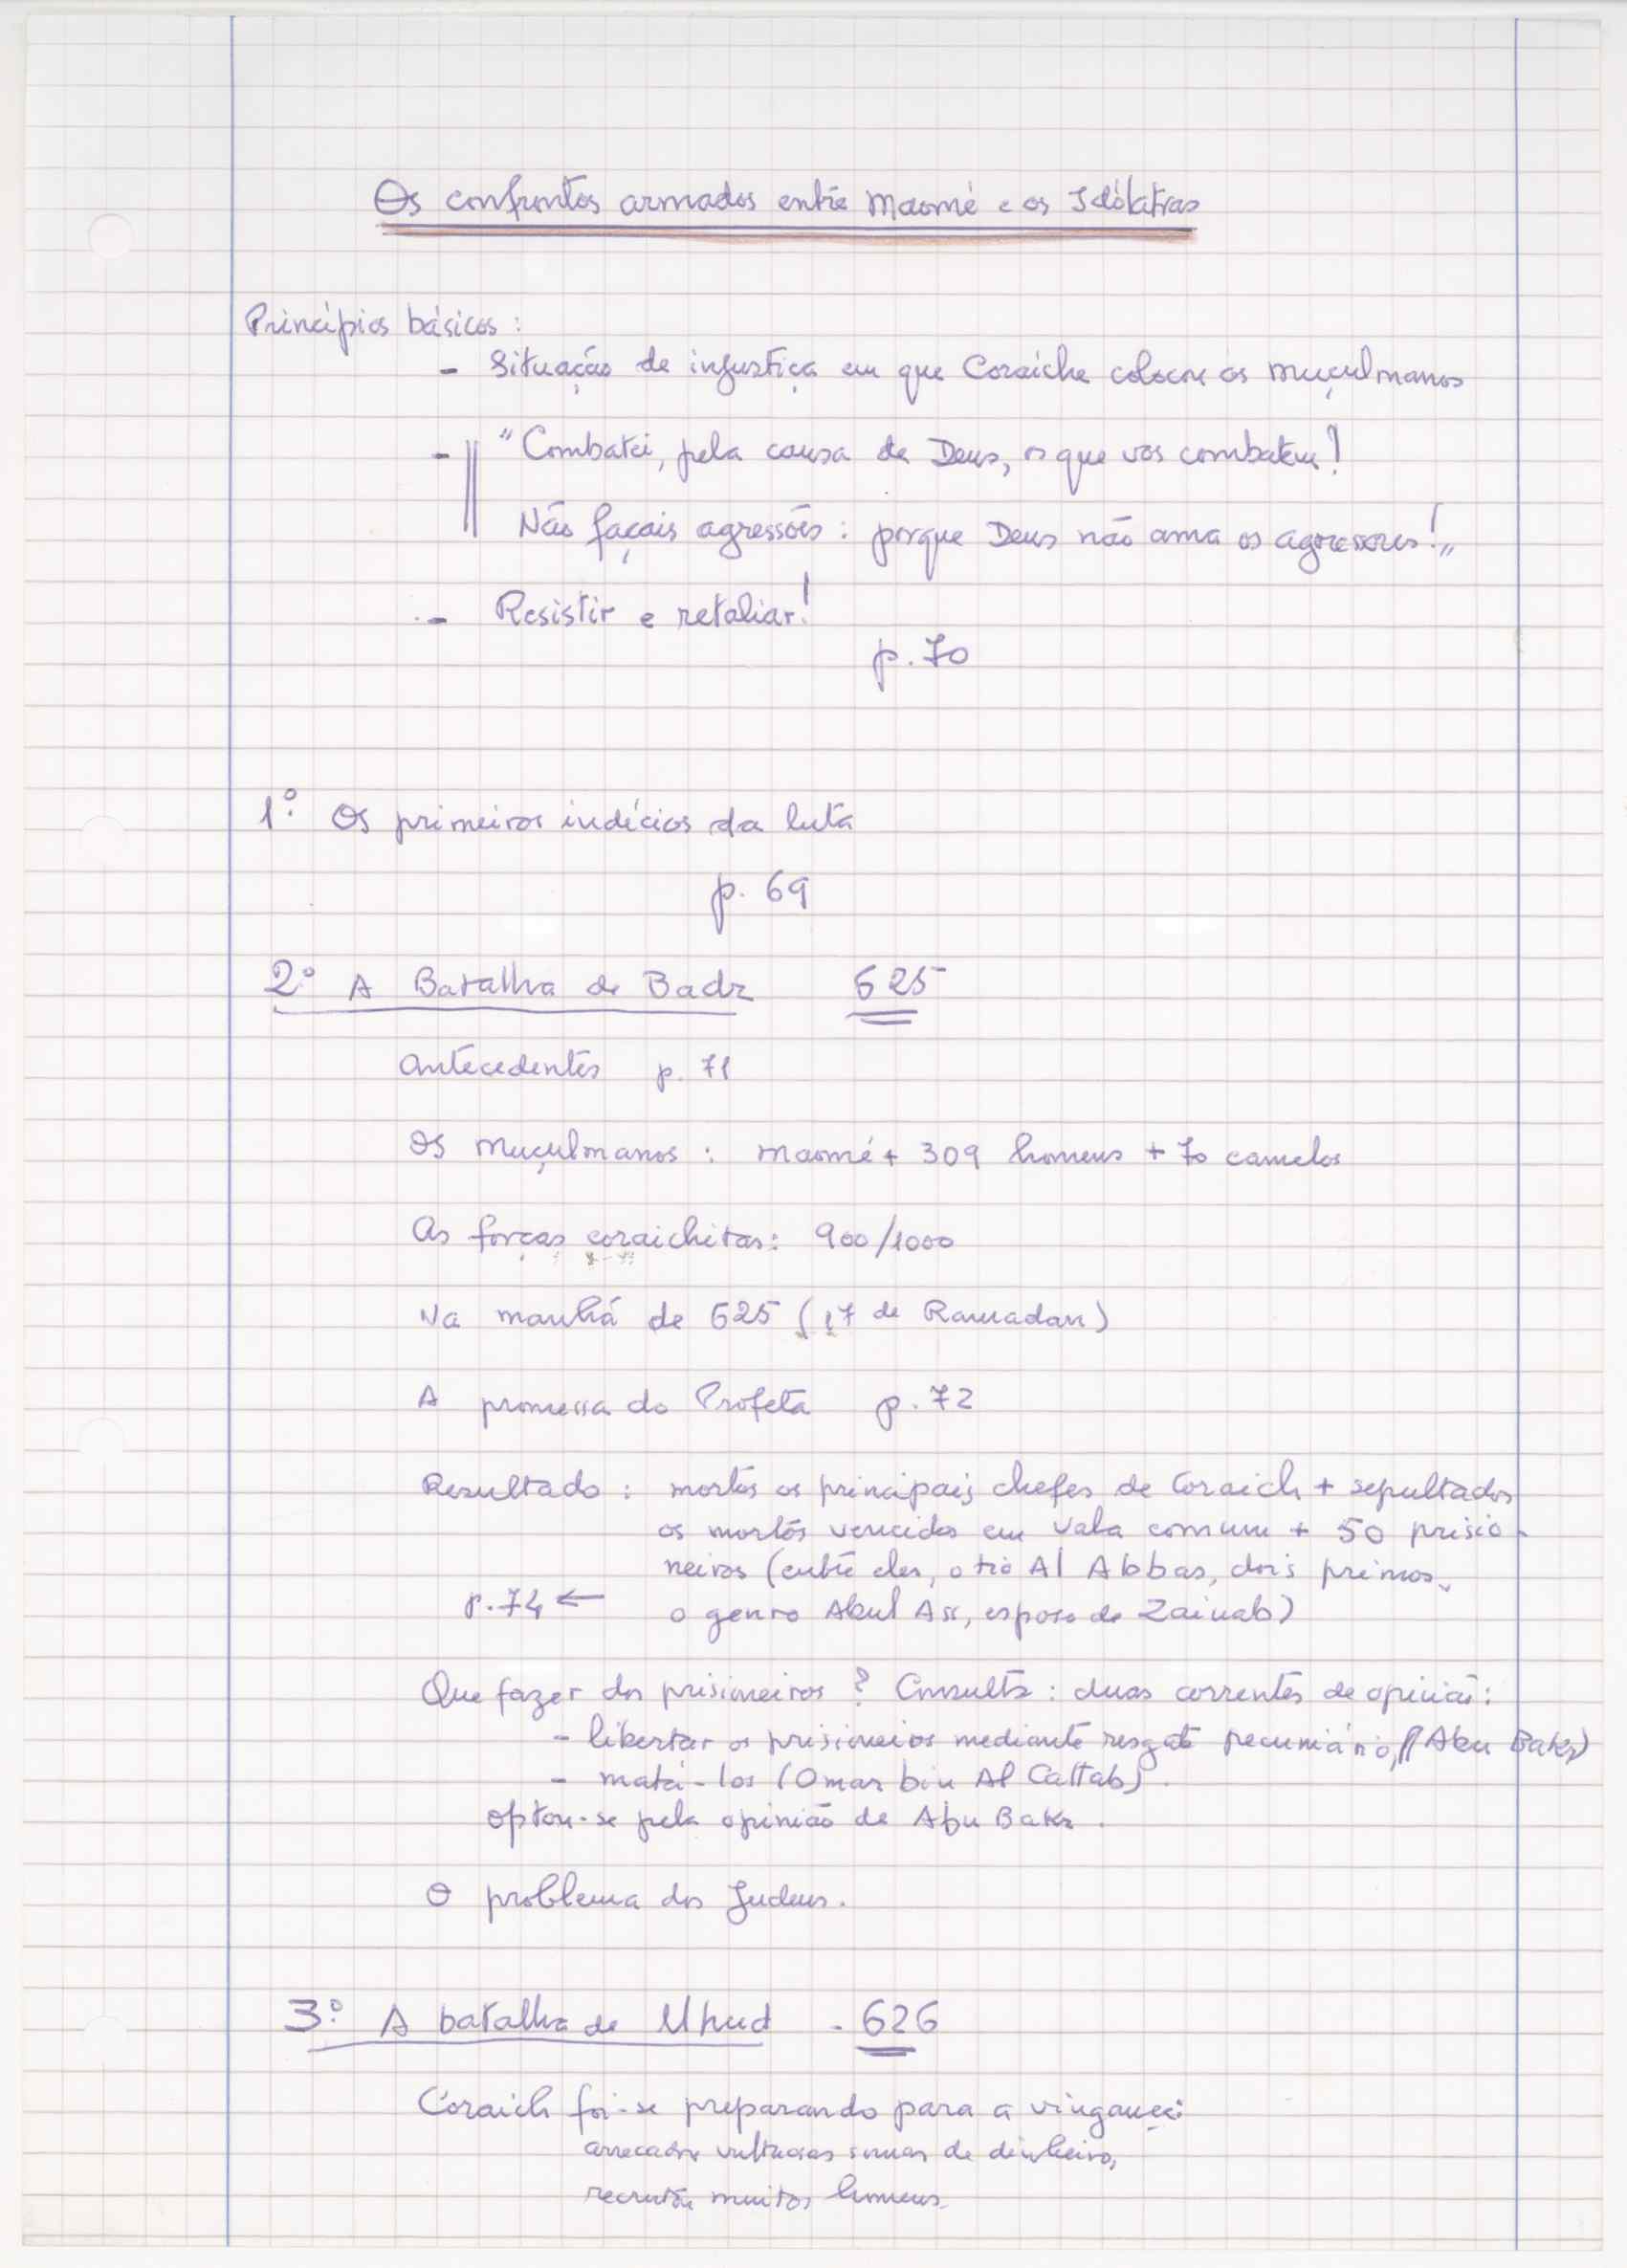 Os confrontos armados entre Maomé e os Idólatras
Princípios básicos :
- Situação de injustiça em que Coraiche colocou os muçulmanos
- "Combatei, pela causa de Deus, os que vos combatem!
Não façais agressões : porque Deus não ama os agressores!"
- Resistir e retaliar!
p. 70
1º. Os primeiros indícios da luta
p. 69
2º. A Batalha de Badr 625
Antecedentes p. 71
Os muçulmanos : Maomé + 309 homens + 70 camelos
As forças coraichitas : 900/1000
Na manhã de 625 (17 de Ramadan)
A promessa do Profeta p. 72
Resultado : mortos os principais chefes de Coraich + sepultados
os mortos vencidos em vala comum + 50 prisio-
neiros (entre eles, o tio Al Abbas, dois primos,
p. 74 ← o genro Abul Ass, esposo de Zainab)
Que fazer dos prisioneiros ? Consulta : duas correntes de opinião :
- libertar os prisioneiros mediante resgate pecuniário, (Abu Bakr)
- matá-los (Omar bin Al Cattab).
optou-se pela opinião de Abu Bakr.
O problema dos Judeus.
3º. A batalha de Uhud - 626
Coraich foi-se preparando para a vingança :
arrecadou vultuosas somas de dinheiro,
recrutou muitos homens.